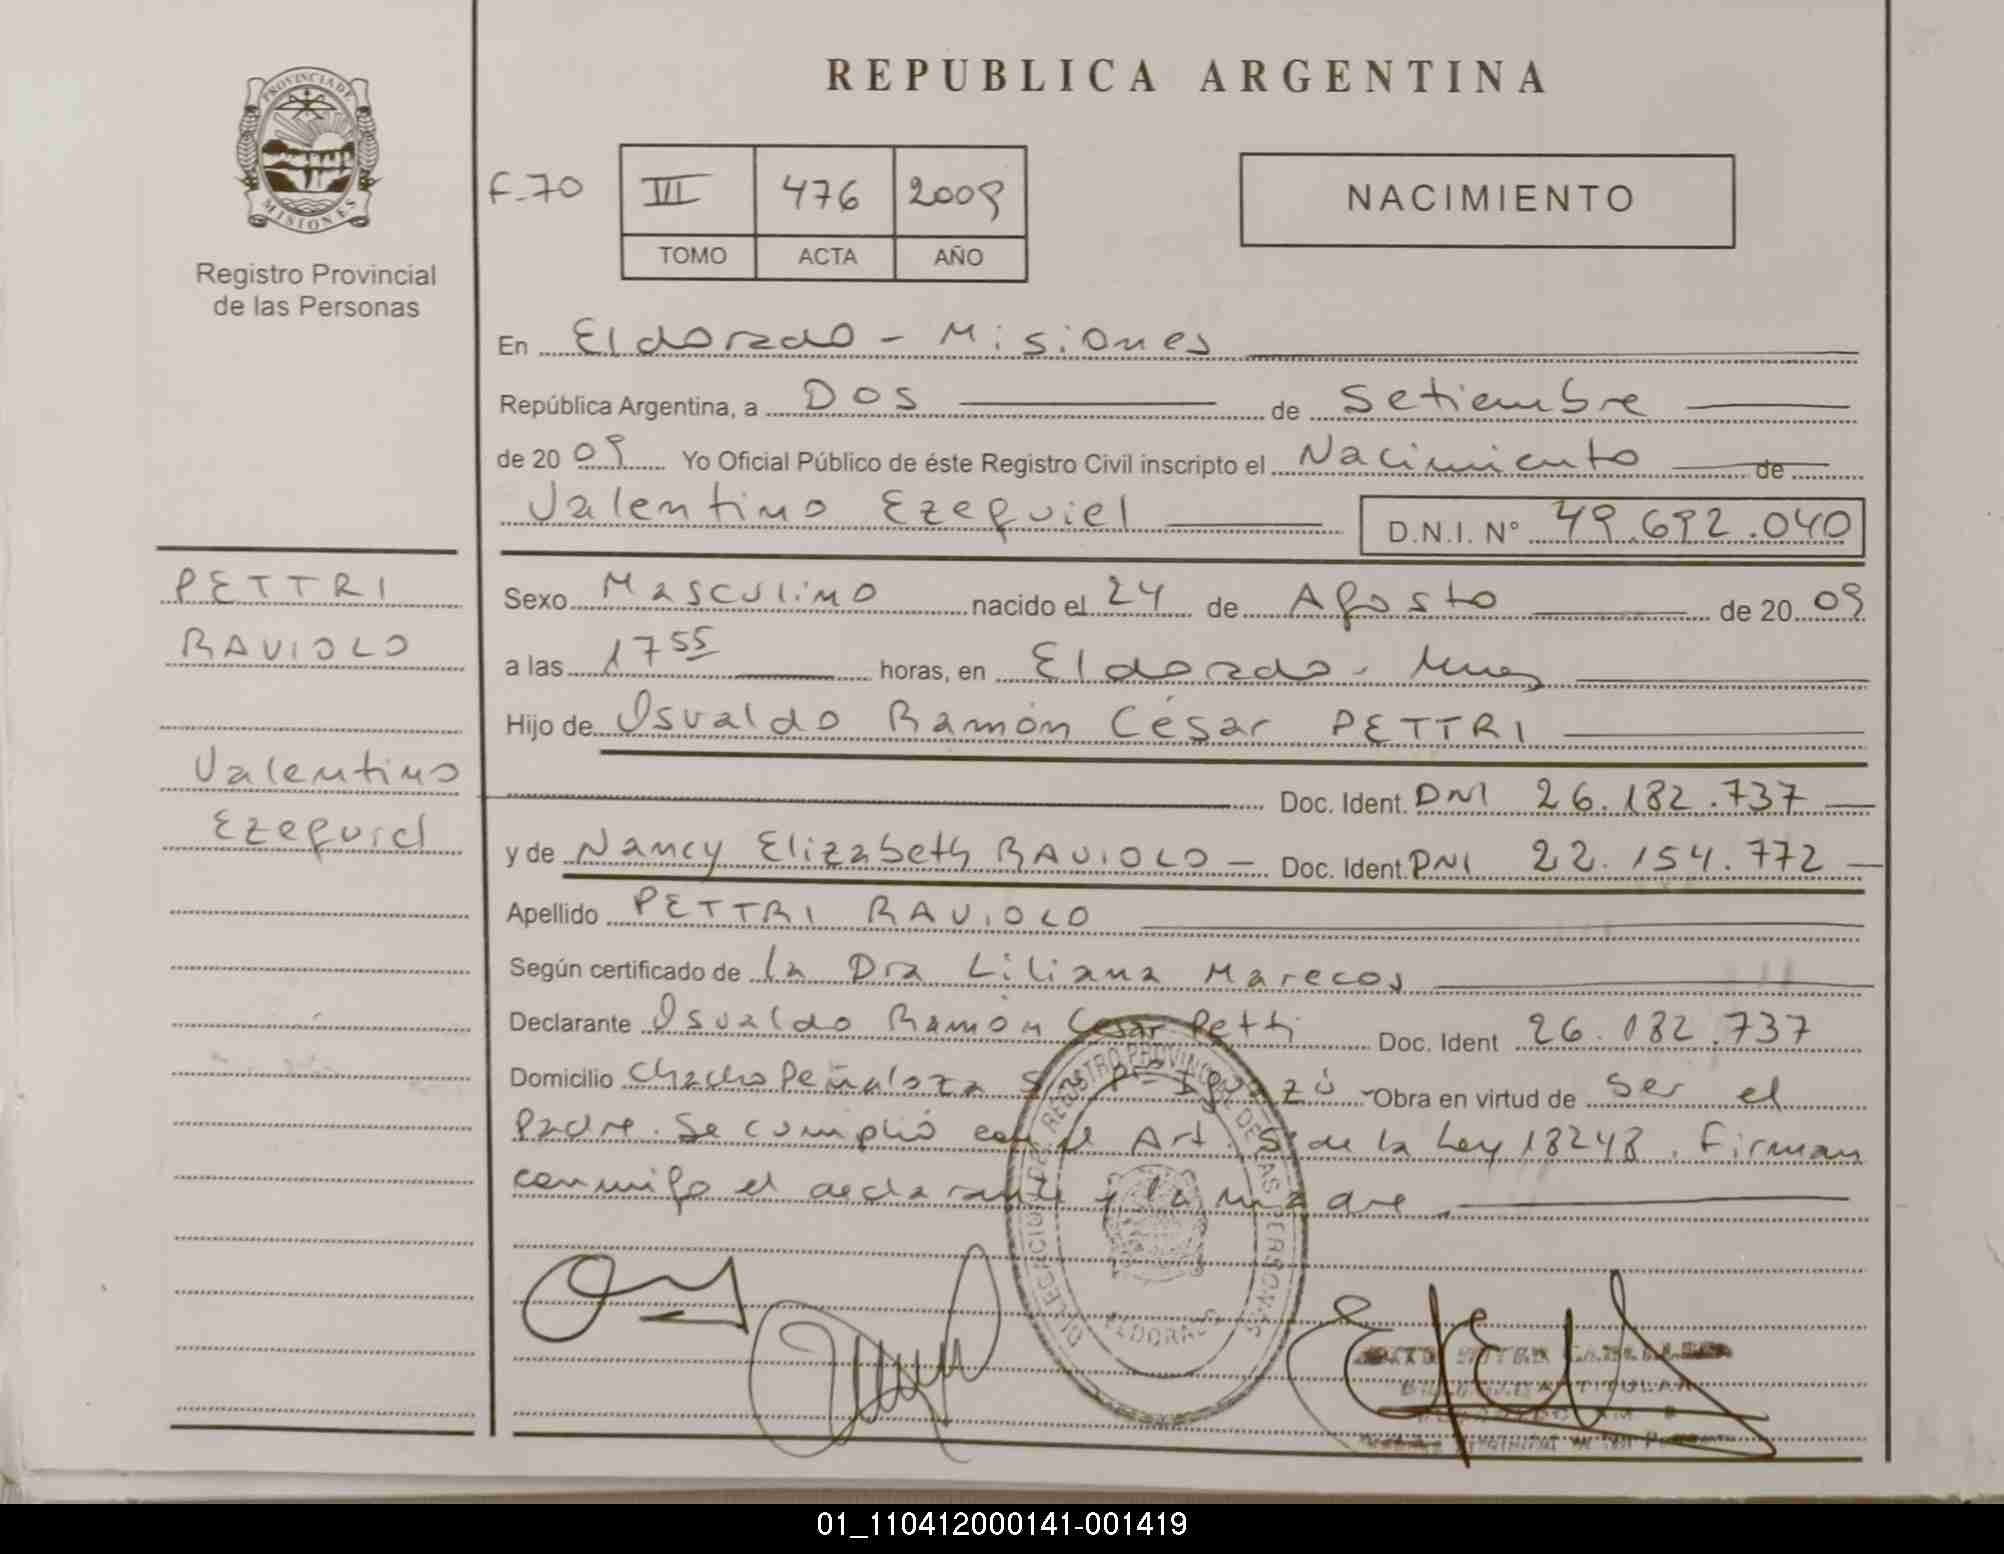 REPUBLICA ARGENTINA
PROVINCIA DE MISIONES
Registro Provincial
de las Personas
F-70
III 476 2009
TOMO ACTA AÑO
NACIMIENTO
En Eldorado - Misiones
República Argentina, a Dos de Setiembre
de 20 09 Yo Oficial Público de éste Registro Civil inscripto el Nacimiento de
Valentino Ezequiel D.N.I. N° 49.692.040
PETTRI
RAVIOLO
Valentino
Ezequiel
Sexo Masculino nacido el 24 de Agosto de 20 09
a las 17 55 horas, en Eldorado - Mnes
Hijo de Osvaldo Ramón César PETTRI
Doc. Ident. DNI 26.182.737
y de Nancy Elizabeth RAVIOLO Doc. Ident. DNI 22.154.772
Apellido PETTRI RAVIOLO
Según certificado de la Dra Liliana Marecos
Declarante Osvaldo Ramón César Doc. Ident 26.182.737
Domicilio Chacho Peñaloza Obra en virtud de ser el
Padre. Se cumplió con el Art. 5° de la Ley 18248. Firman
conmigo el declarante y la madre.
DELEGACION DEL REGISTRO PROVINCIAL DE LAS PERSONAS
ELDORADO
01_110412000141-001419